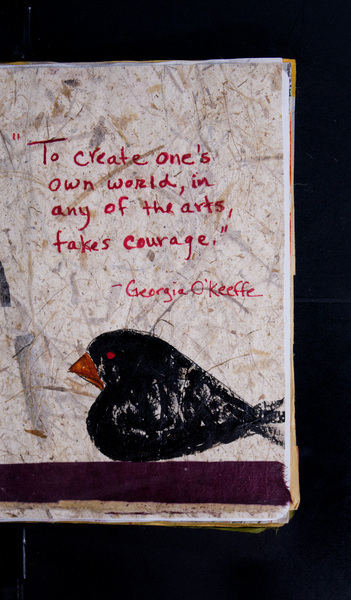 "To create one's
own world, in
any of the arts,
takes courage."
- Georgia O'Keeffe